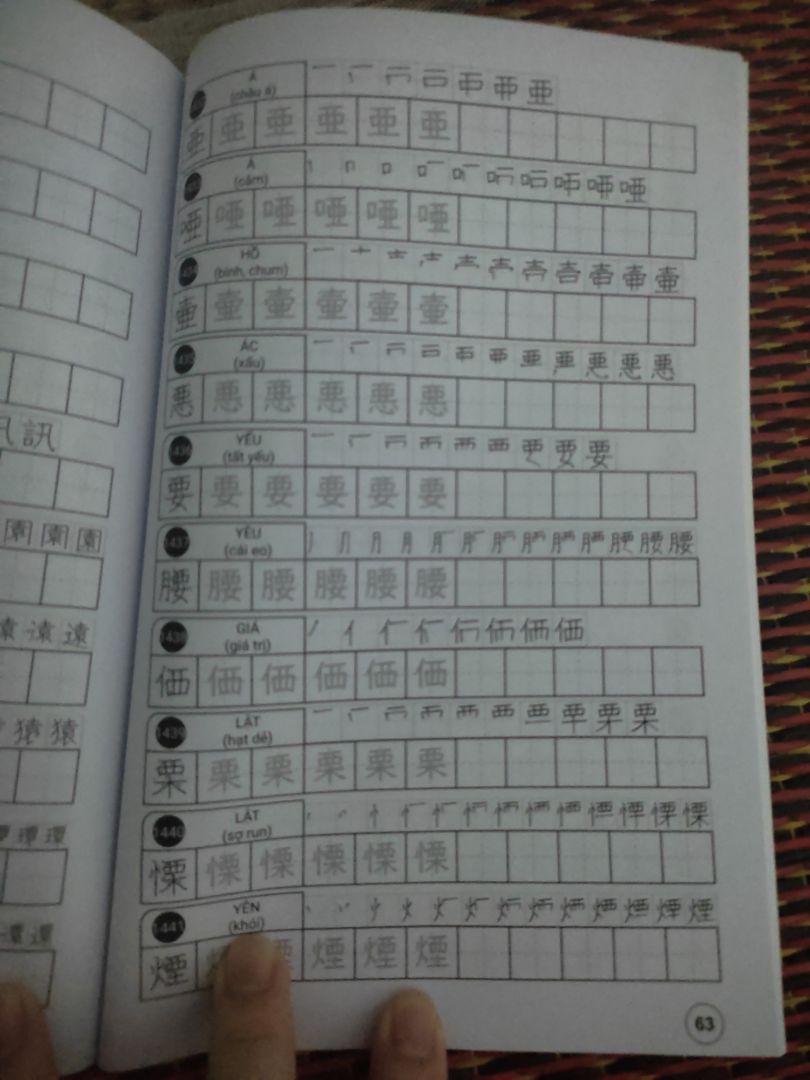 訊
園 園 園
遠 遠
猿 猿
環 環
Á
(châu á)
亜
亜 亜 亜 亜 亜 亜
Á
(câm)
唖
唖 唖 唖 唖 唖 唖
HỒ
(bình, chum)
壷
壷 壷 壷 壷 壷 壷
1435
ÁC
(xấu)
悪
悪 悪 悪 悪 悪 悪
1436
YẾU
(tất yếu)
要
要 要 要 要 要 要
1437
YÊU
(cái eo)
腰
腰 腰 腰 腰 腰 腰
1438
GIÁ
(giá trị)
価
価 価 価 価 価 価
1439
LẬT
(hạt dẻ)
栗
栗 栗 栗 栗 栗 栗
1440
LẬT
(sợ run)
慄
慄 慄 慄 慄 慄 慄
1441
YÊN
(khói)
煙
煙 煙 煙 煙
63